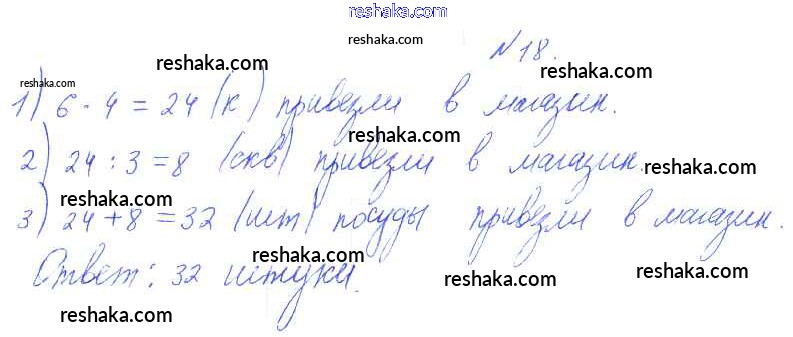 reshaka.com
reshaka.com
N18.
reshaka.com
reshaka.com
1) 6 · 4 = 24 (к) привезли в магазин.
reshaka.com
reshaka.com
2) 24 : 3 = 8 (скв) привезли в магазин.
reshaka.com
reshaka.com
3) 24 + 8 = 32 (шт) посуды привезли в магазин.
reshaka.com
Ответ: 32 штуки.
reshaka.com
reshaka.com
reshaka.com
reshaka.com